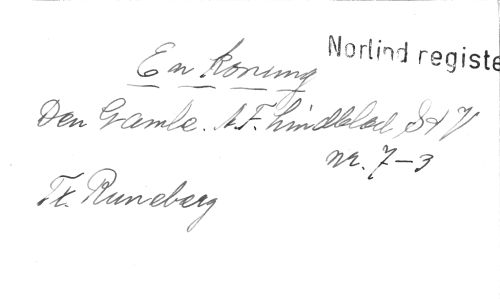 Norlind registe
En konung
Den Gamle. A. F. Lindblad, S & V
nr. 7-3
Tx. Runeberg